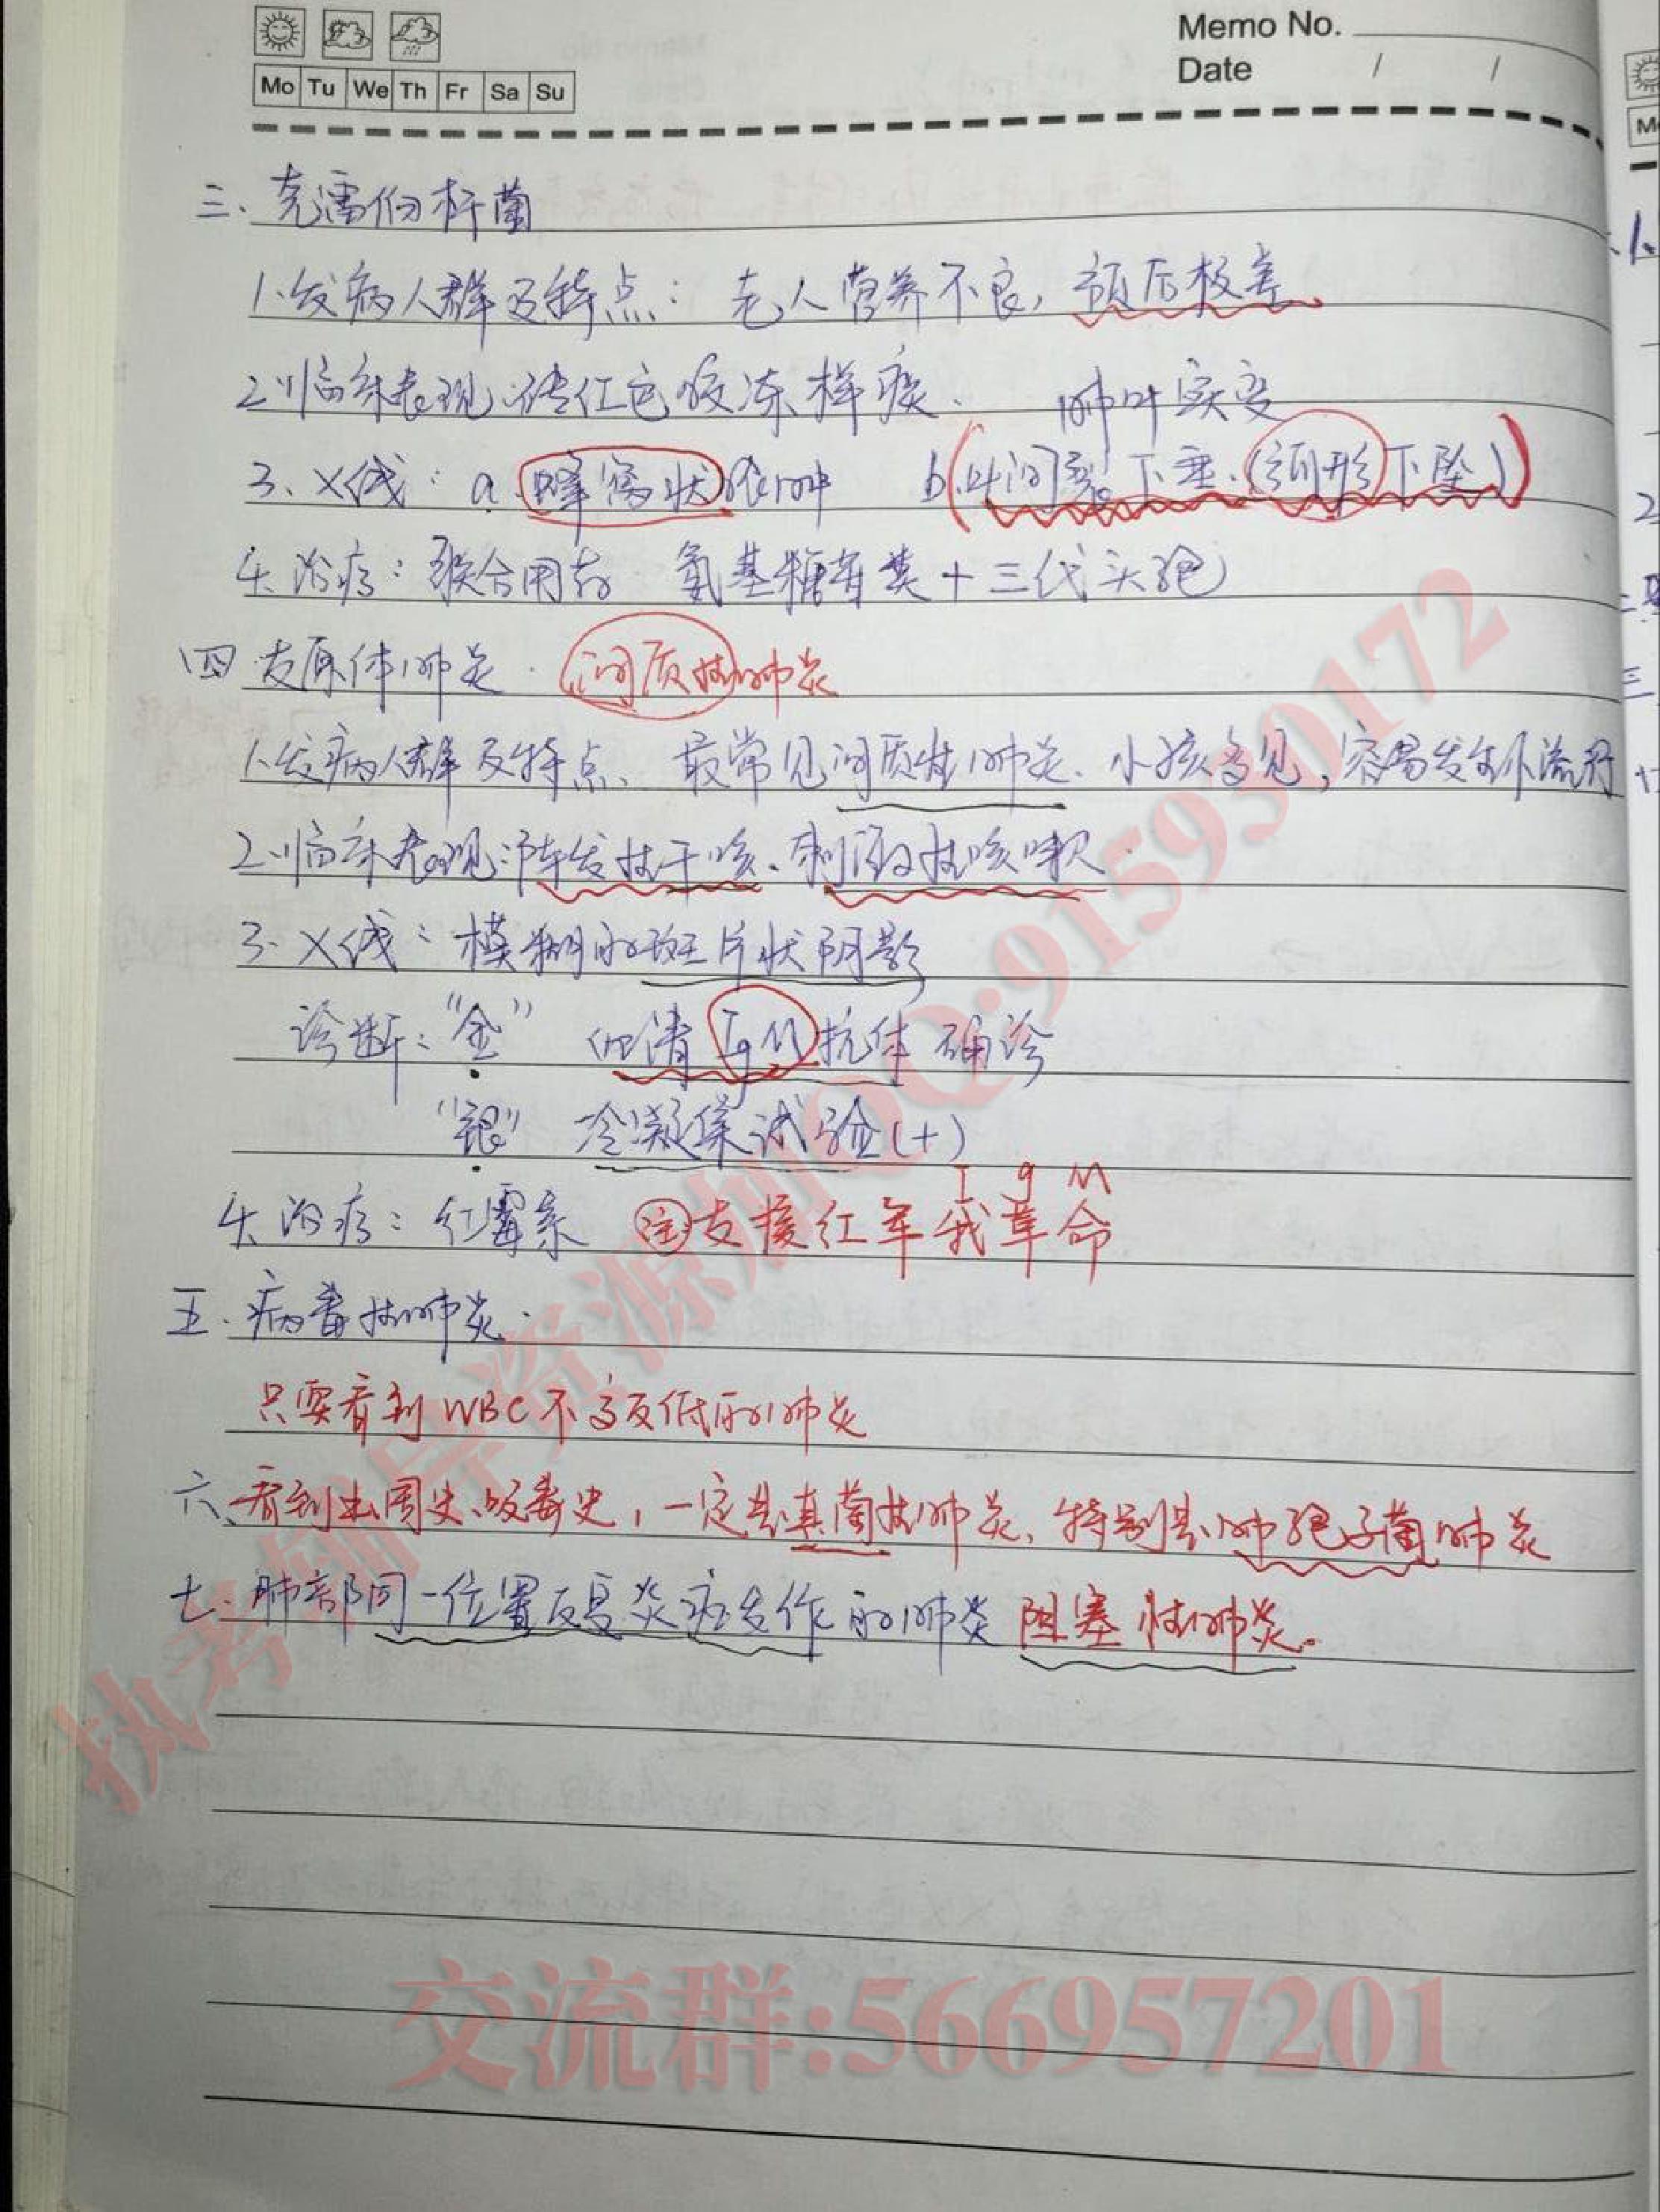 Memo No.
Date / /
Mo Tu We Th Fr Sa Su
三、克雷伯杆菌
1.发病人群及特点：老人营养不良，预后极差
2.临床表现：砖红色胶冻样痰、肺叶实变
3、X线：a.蜂窝状 b.(叶间裂下垂.(弧形下坠))
4.治疗：联合用药 氨基糖苷类+三代头孢
四.支原体肺炎.间质性肺炎
1.发病人群及特点、最常见间质性肺炎、小孩多见，容易发生小流行
2.临床表现:阵发性干咳、刺激性咳嗽.
3.X线：模糊的斑片状阴影
诊断："金" 血清IgM抗体确诊
"银" 冷凝集试验(+)
I g M
4.治疗：红霉素 注支援红军我革命
五.病毒性肺炎.
只要看到WBC不高反低的肺炎
六、看到出国史、吸毒史，一定是真菌性肺炎，特别是肺孢子菌肺炎
七.肺部同一位置反复炎症发作的肺炎 阻塞性肺炎。
执考辅导资源加QQ:915930172
交流群:566957201